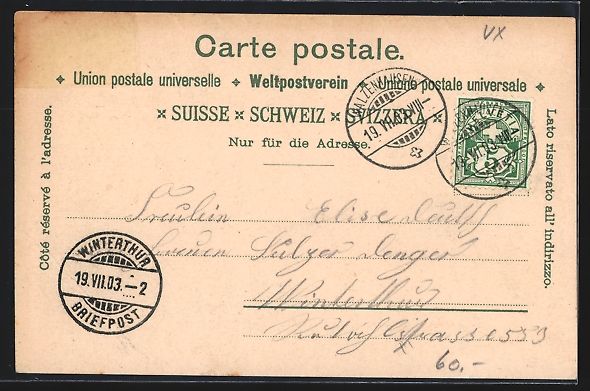 VX
Carte postale.
Union postale universelle Weltpostverein Unione postale universale
SUISSE SCHWEIZ SVIZZERA
Nur für die Adresse.
Côté réservé à l'adresse.
Lato riservato all' indirizzo.
WALZENHAUSEN
19.VII.03.VIII-
HELVETIA
5
Fräulein Elise
Sulzer
WINTERTHUR
19.VII.03.-2
BRIEFPOST
Winterthur
60.-